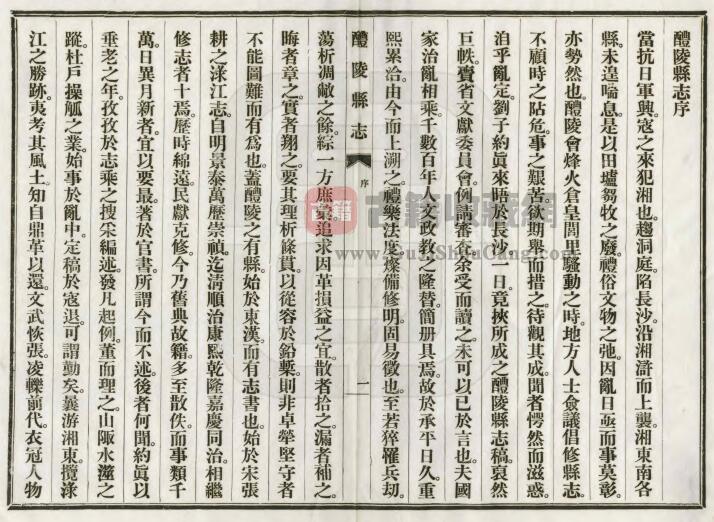 醴陵縣志序
當抗日軍興寇之來犯湘也趨洞庭陷長沙沿湘滸而上襲湘東南各
縣未遑喘息是以田壚芻牧之廢禮俗文物之弛因亂日亟而事莫彰
亦勢然也醴陵會烽火倉皇閭里騷動之時地方人士僉議倡修縣志
不顧時之阽危事之艱苦欲期舉而措之待觀其成聞者愕然而滋惑
洎乎亂定劉子約眞來晤於長沙一日竟挾所成之醴陵縣志稿裒然
巨帙賷省文獻委員會例請審查余受而讀之未可以已於言也夫國
家治亂相乘千數百年人文政教之隆替簡册具焉故於承平日久重
熙累洽由今而上溯之禮樂法度燦備修明固易徵也至若猝罹兵劫
醴陵縣志
序
一
蕩析凋敝之餘綜一方庶彙追求因革損益之宜散者拾之漏者補之
晦者章之實者翔之要其理析條貫以從容於鉛槧則非卓犖堅守者
不能圖難而有爲也蓋醴陵之有縣始於東漢而有志書也始於宋張
耕之淥江志自明景泰萬歷崇禎迄淸順治康熙乾隆嘉慶同治相繼
修志者十焉歷時綿遠民獻克修今乃舊典故籍多至散佚而事類千
萬日異月新者宜以要最著於官書所謂今而不述後者何聞約眞以
垂老之年孜孜於志乘之搜采編述發凡起例董而理之山陬水澨之
蹤杜戶操觚之業始事於亂中定稿於寇退可謂勤矣曩游湘東攬淥
江之勝跡夷考其風土知自鼎革以還文武恢張凌轢前代衣冠人物
古籍收藏网
www.GuJiShouCang.com